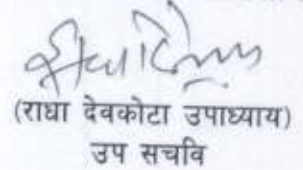 (राधा देवकोटा उपाध्याय)
उप सचवि